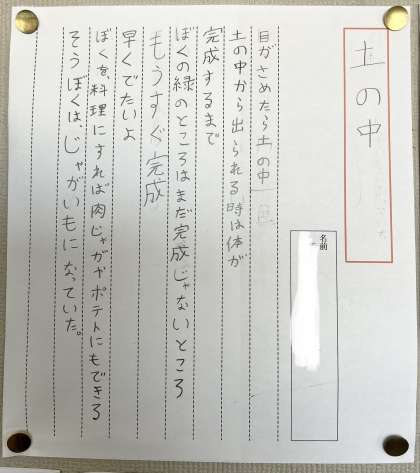 土の中
名前
目がさめたら土の中
土の中から出られる時は体が
完成するまで
ぼくの緑のところはまだ完成じゃないところ
もうすぐ完成
早くでたいよ
ぼくを料理にすれば肉じゃがやポテトにもできる
そうぼくは、じゃがいもになっていた。